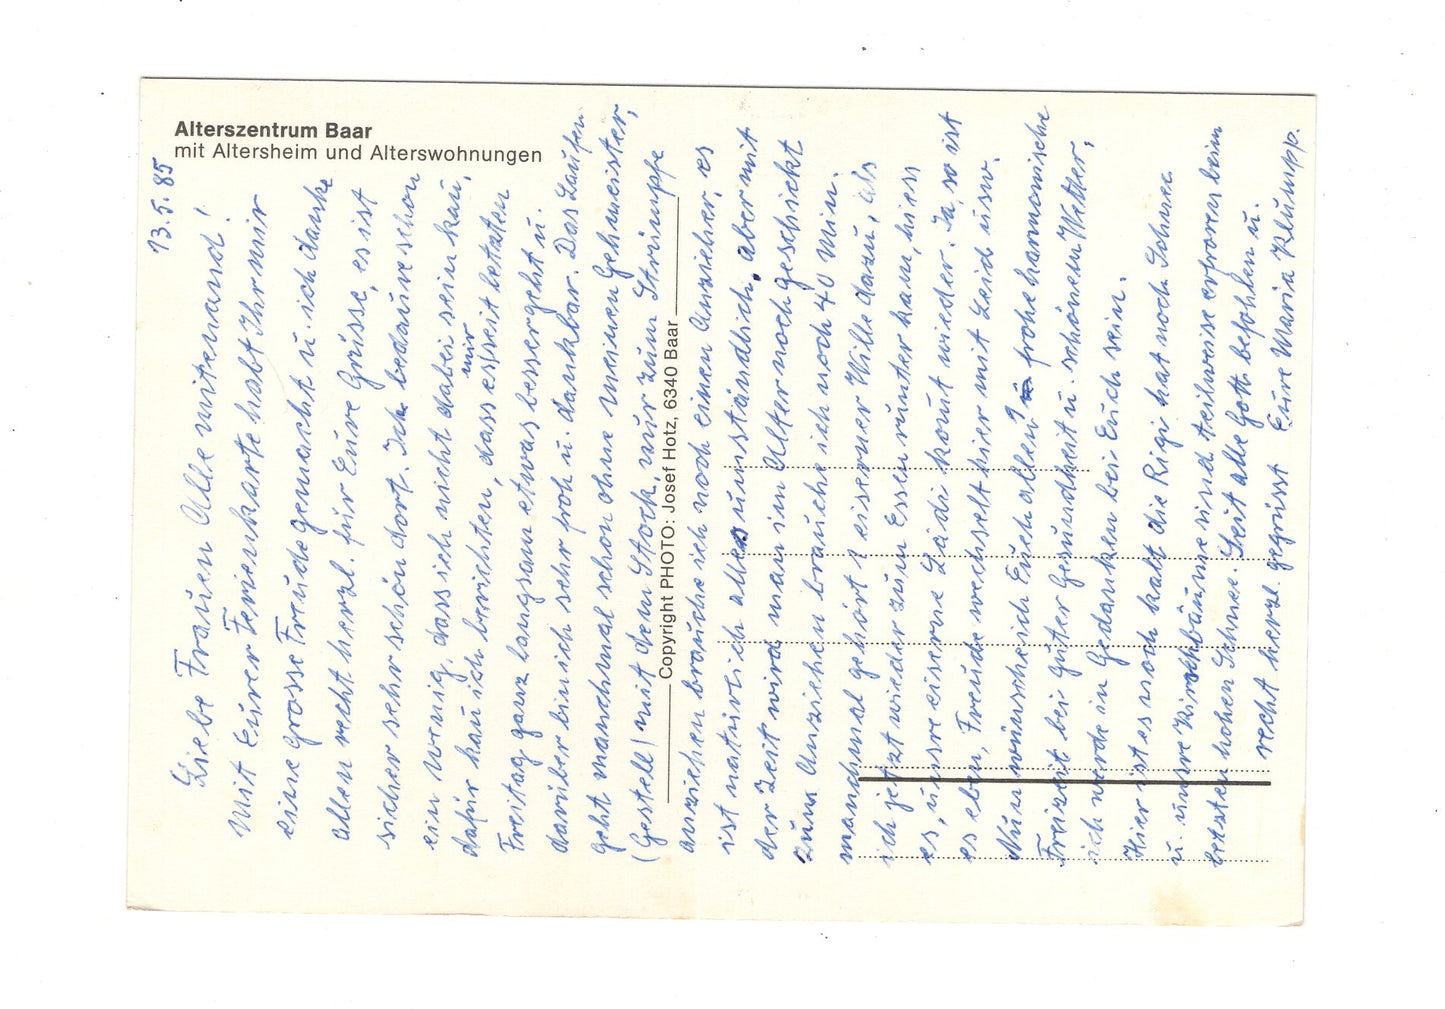 Alterszentrum Baar
mit Altersheim und Alterswohnungen
Copyright PHOTO: Josef Hotz, 6340 Baar
13.5.85
Liebe Frauen Alle mitenand!
Mit Eurer Ferienkarte habt Ihr mir
eine grosse Freude gemacht u. ich danke
allen recht herzl. für Eure Grüsse, es ist
sicher sehr schön dort. Ich bedaure schon
ein wenig, dass ich nicht dabei sein kan,
dafür kan ich berichten, dass es mir seit letzten
Freitag ganz langsam etwas besser geht u.
darüber bin ich sehr froh u. dankbar. Das Laufen
geht manchmal schon ohne meinen Gehmeister,
(Gestell) mit dem Stock, nur zum Strümpfe
anziehen brauche ich noch einen Anzieher, es
ist natürlich alles umständlich, aber mit
der Zeit wird man im Alter noch geschickt
zum Anziehen brauche ich noch 40 Min.
manchmal gehört 1 eiserner Wille dazu, als
ich jetzt wieder zum Essen runter kam, hiess
es, unsre eiserne Ladi komt wieder. Ja, so ist
es eben, Freude wechselt hier mit Leid usw.
Nun wünsche ich Euch allen frohe harmonische
Freizeit bei guter Gesundheit u. schönem Wetter,
ich werde in Gedanken bei Euch sein.
Hier ist es noch kalt die Rigi hat noch Schnee
u. unsre Kirschbäume sind teilweise erfroren beim
letzten hohen Schnee. Seit alle Gott befohlen u.
recht herzl. gegrüsst Eure Maria Klumpp.